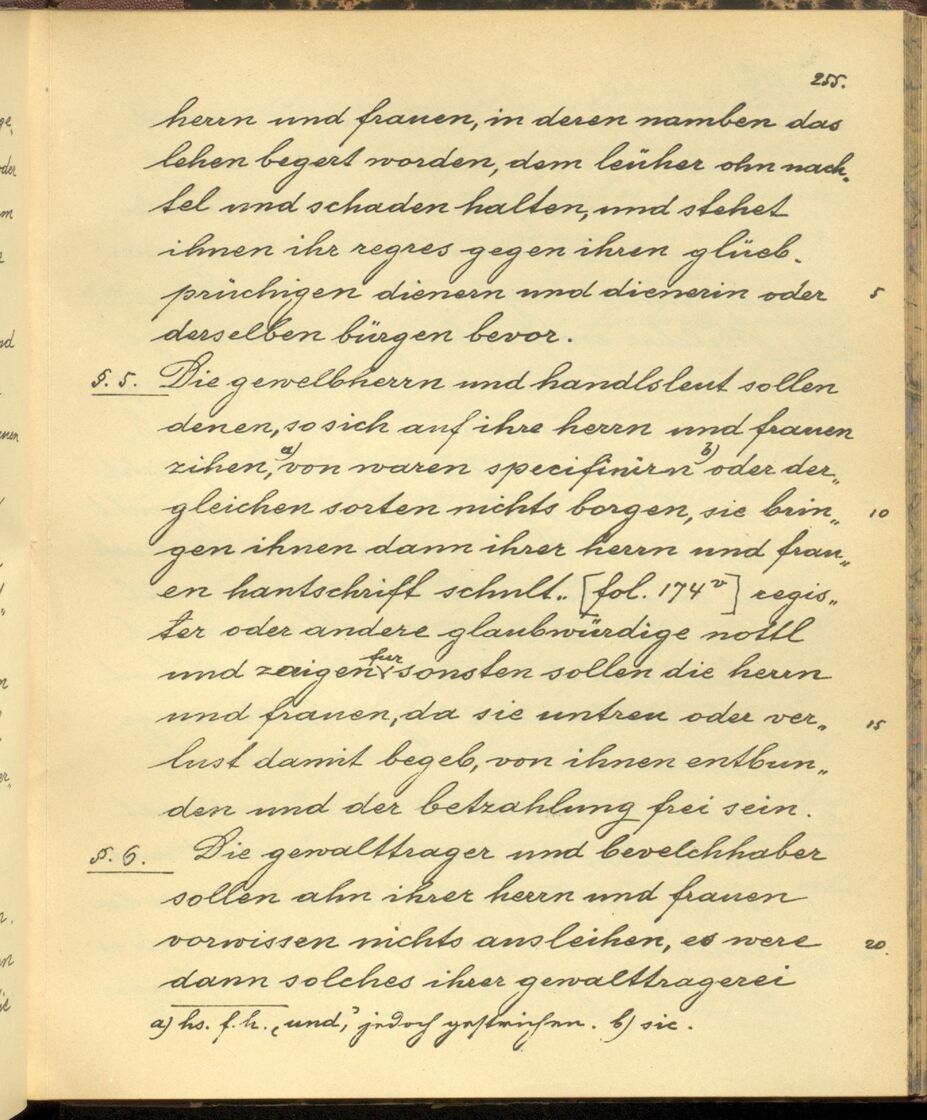 255.
herrn und frauen, in deren namben das
lehen begert worden, dem leüher ohn nach-
tel und schaden halten, und stehet
ihnen ihr regres gegen ihren glüeb-
prüchigen dienern und dienerin oder 5
derselben bürgen bevor.
§. 5. Die gewelbherrn und handlsleut sollen
denen, so sich auf ihre herrn und frauen
zihen, a) von waren specifinirn b) oder der„
gleichen sorten nichts borgen, sie brin„ 10
gen ihnen dann ihrer herrn und frau„
en hantschrift schult„ [fol. 174v] regis„
ter oder andere glaubwürdige nottl
und zaigen fur sonsten sollen die herrn
und frauen, da sie untreu oder ver„ 15
lust damit begeb, von ihnen entbun„
den und der betzahlung frei sein.
§. 6. Die gewalttrager und bevelchhaber
sollen ahn ihrer herrn und frauen
vorwissen nichts ausleihen, es were 20.
dann solches ihrer gewalttragerei
a) hs. f. h. „und“, jedoch gestrichen. b) sic.